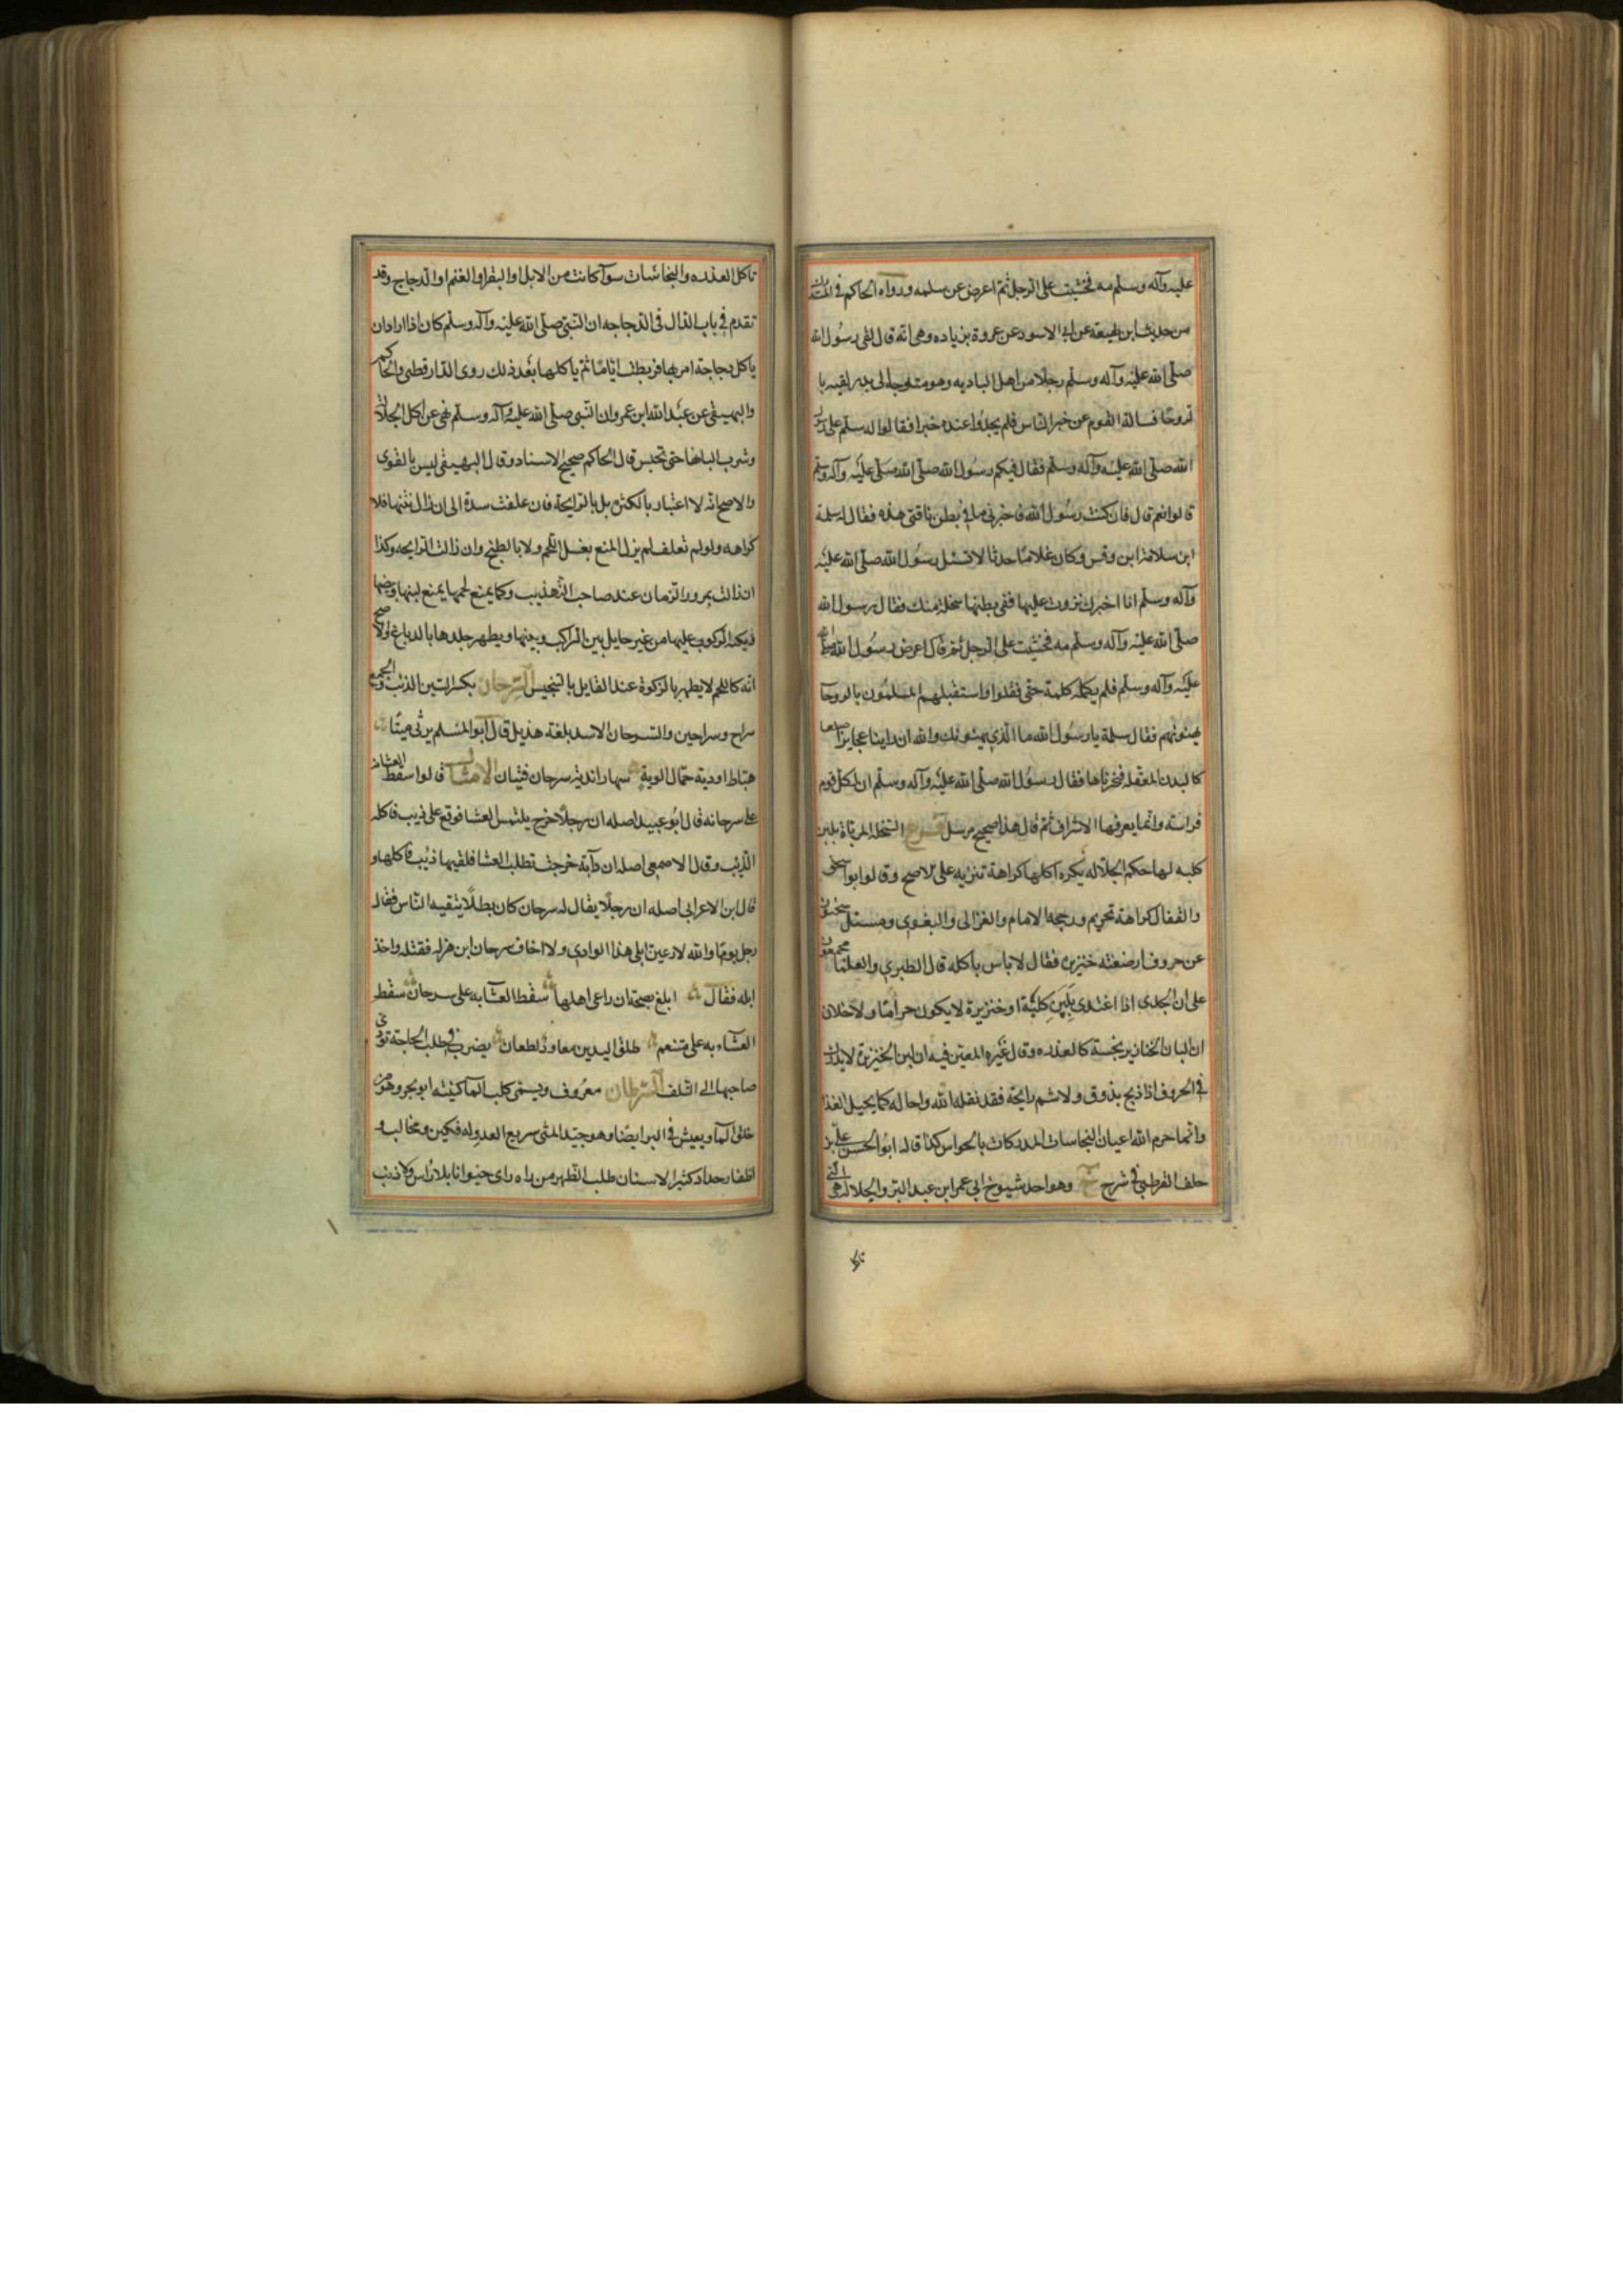 عليه وآله وسلم مه فحشت على الرجل ثم اعرض عن سلمه ورواه الحاكم في المستدرك
من حديث ابن لهيعة عن ابي الاسود عن عروة بن زياده وهي انه قال لقي رسول الله
صلى الله عليه وآله وسلم رجلا من اهل الباديه وهو متوجه الى بدر لقيه با
لروحا فساله القوم عن خبر الناس فلم يجدوا عنده خبرا فقالوا له سلم على رسول
الله صلى الله عليه وآله وسلم فقال افيكم رسول الله صلى الله صلى عليه وآله وسلم
قالوا نعم قال فان كنت رسول الله فاخبرني ما في بطن ناقتي هذه فقال له سلمة
ابن سلامة ابن وقس وكان غلاما حدثا لا تسئل رسول الله صلى الله عليه
وآله وسلم انا اخبرك نزوت عليها ففي بطنها سخلة منك فقال رسول الله
صلى الله عليه وآله وسلم مه فحشت على الرجل ثم قال اعرض رسول الله صلى الله
عليه وآله وسلم فلم يكلمه كلمة حتى فقلوا واستقبلهم المسلمون بالروحا
يهنونهم فقال سلمة يا رسول الله ما الذي يهنونك والله ان راينا عجايز صلعا
كالبدن المعقله فنحرناها فقال رسول الله صلى الله عليه وآله وسلم ان لكل قوم
فراسته وانما يعرفها الاشراف ثم قال هذا صحيح مرسل فرع السخلة المرباة بلبن
كلبه لها حكم الجلاله يكره اكلها كراهة تنزيه على الاصح وقالوا ابو اسحق
والقفال كراهة تحريم ورجحه الامام والغزالى والبغوى وسئل سحنون
عن خروف ارضعته خنزيره فقال لا باس باكله قال الطبري والعلما مجمعون
على ان الجدى اذا اغتدى بلبن كلبة او خنزيرة لا يكون حراما ولا خلاف
ان البان الخنازير نجسة كالعذره وقال غيره المعنى فيه ان لبن الخنزيرة لا يدرك
في الخروف اذا ذبح بذوق ولا شم رايحة فقد نقله الله واحاله كما يحيل الغذا
وانما حرم الله اعيان النجاسات المدركات بالحواس كذا قاله ابو الحسن على بن
خلف القرطبى في شرح خ وهو احد شيوخ ابي عمر ابن عبد البر والجلاله هى التي
تاكل
تاكل العذره والنجاسات سوآ كانت من الابل او البقر او الغنم او الدجاج وقد
تقدم في باب الدال فى الدجاجه ان النبي صلى الله عليه وآله وسلم كان اذا اراد ان
ياكل دجاجة امر بها فربطت اياما ثم ياكلها بعد ذلك روى الدارقطنى والحاكم
والبيهقى عن عبد الله ابن عمر وان النبى صلى الله عليه وآله وسلم نهى عن اكل الجلالة
وشرب البانها حتى تحبس قال الحاكم صحيح الاسناد وقال البيهقى ليس بالقوى
والاصح انه لا اعتبار بالكثره بل بالرايحة فان علفت سدة الى ان زال نتنها فلا
كراهه ولو لم تعلف لم يزل المنع بغسل اللحم ولا بالطبخ وان زالت الرايحه وكذا
ان زالت بمرور الزمان عند صاحب التهذيب وكما يمنع لحمها يمنع لبنها وبيضها
ويكره الركوب عليها من غير حايل بين الراكب وبينها ويطهر جلدها بالدباغ والاصح
انه كاللحم لا يطهر بالزكوة عند القايل بالتنجيس السرحان بكسر السين الذئب والجمع
سراح وسراحين والسرحان الاسد بلغة هذيل قال ابو المسلم يرثى ميتا
هباط اودية حمال الوية سهاد اندية سرحان فتيان الامثال قالوا سقط العشاء
على سرحانه قال ابو عبيد اصله ان رجلا خرج يلتمس العشا فوقع على ذيب فاكله
الذيب وقال الاصمعى اصله ان دآبة خرجت تطلب العشا فلقيها ذئب فاكلها و
قال ابن الاعرابى اصله ان رجلا يقال له سرحان كان بطلا يتقيه الناس فقال
رجل يوما والله لارعين ابلى هذا الوادي ولا اخاف سرحان ابن هزله فقتله واخذ
ابله فقال ابلغ نصيحة ان راعى اهلها سقط العشآ به على سرحان سقط
العشآء به على متنعم طلق اليدين معاود لطعان يضرب في طلب الحاجة تودى
صاحبها الى التلف السرطان معروف ويسمى كلب المآ كنيته ابو بحر وهو من
خلق المآ ويعيش في البر ايضا وهو جيد المشى سريع العدو له فكين ومخالب و
اظفار حداد كثير الاسنان طلب الظهر من راه راى حيوانا بلا راس ولا ذنب